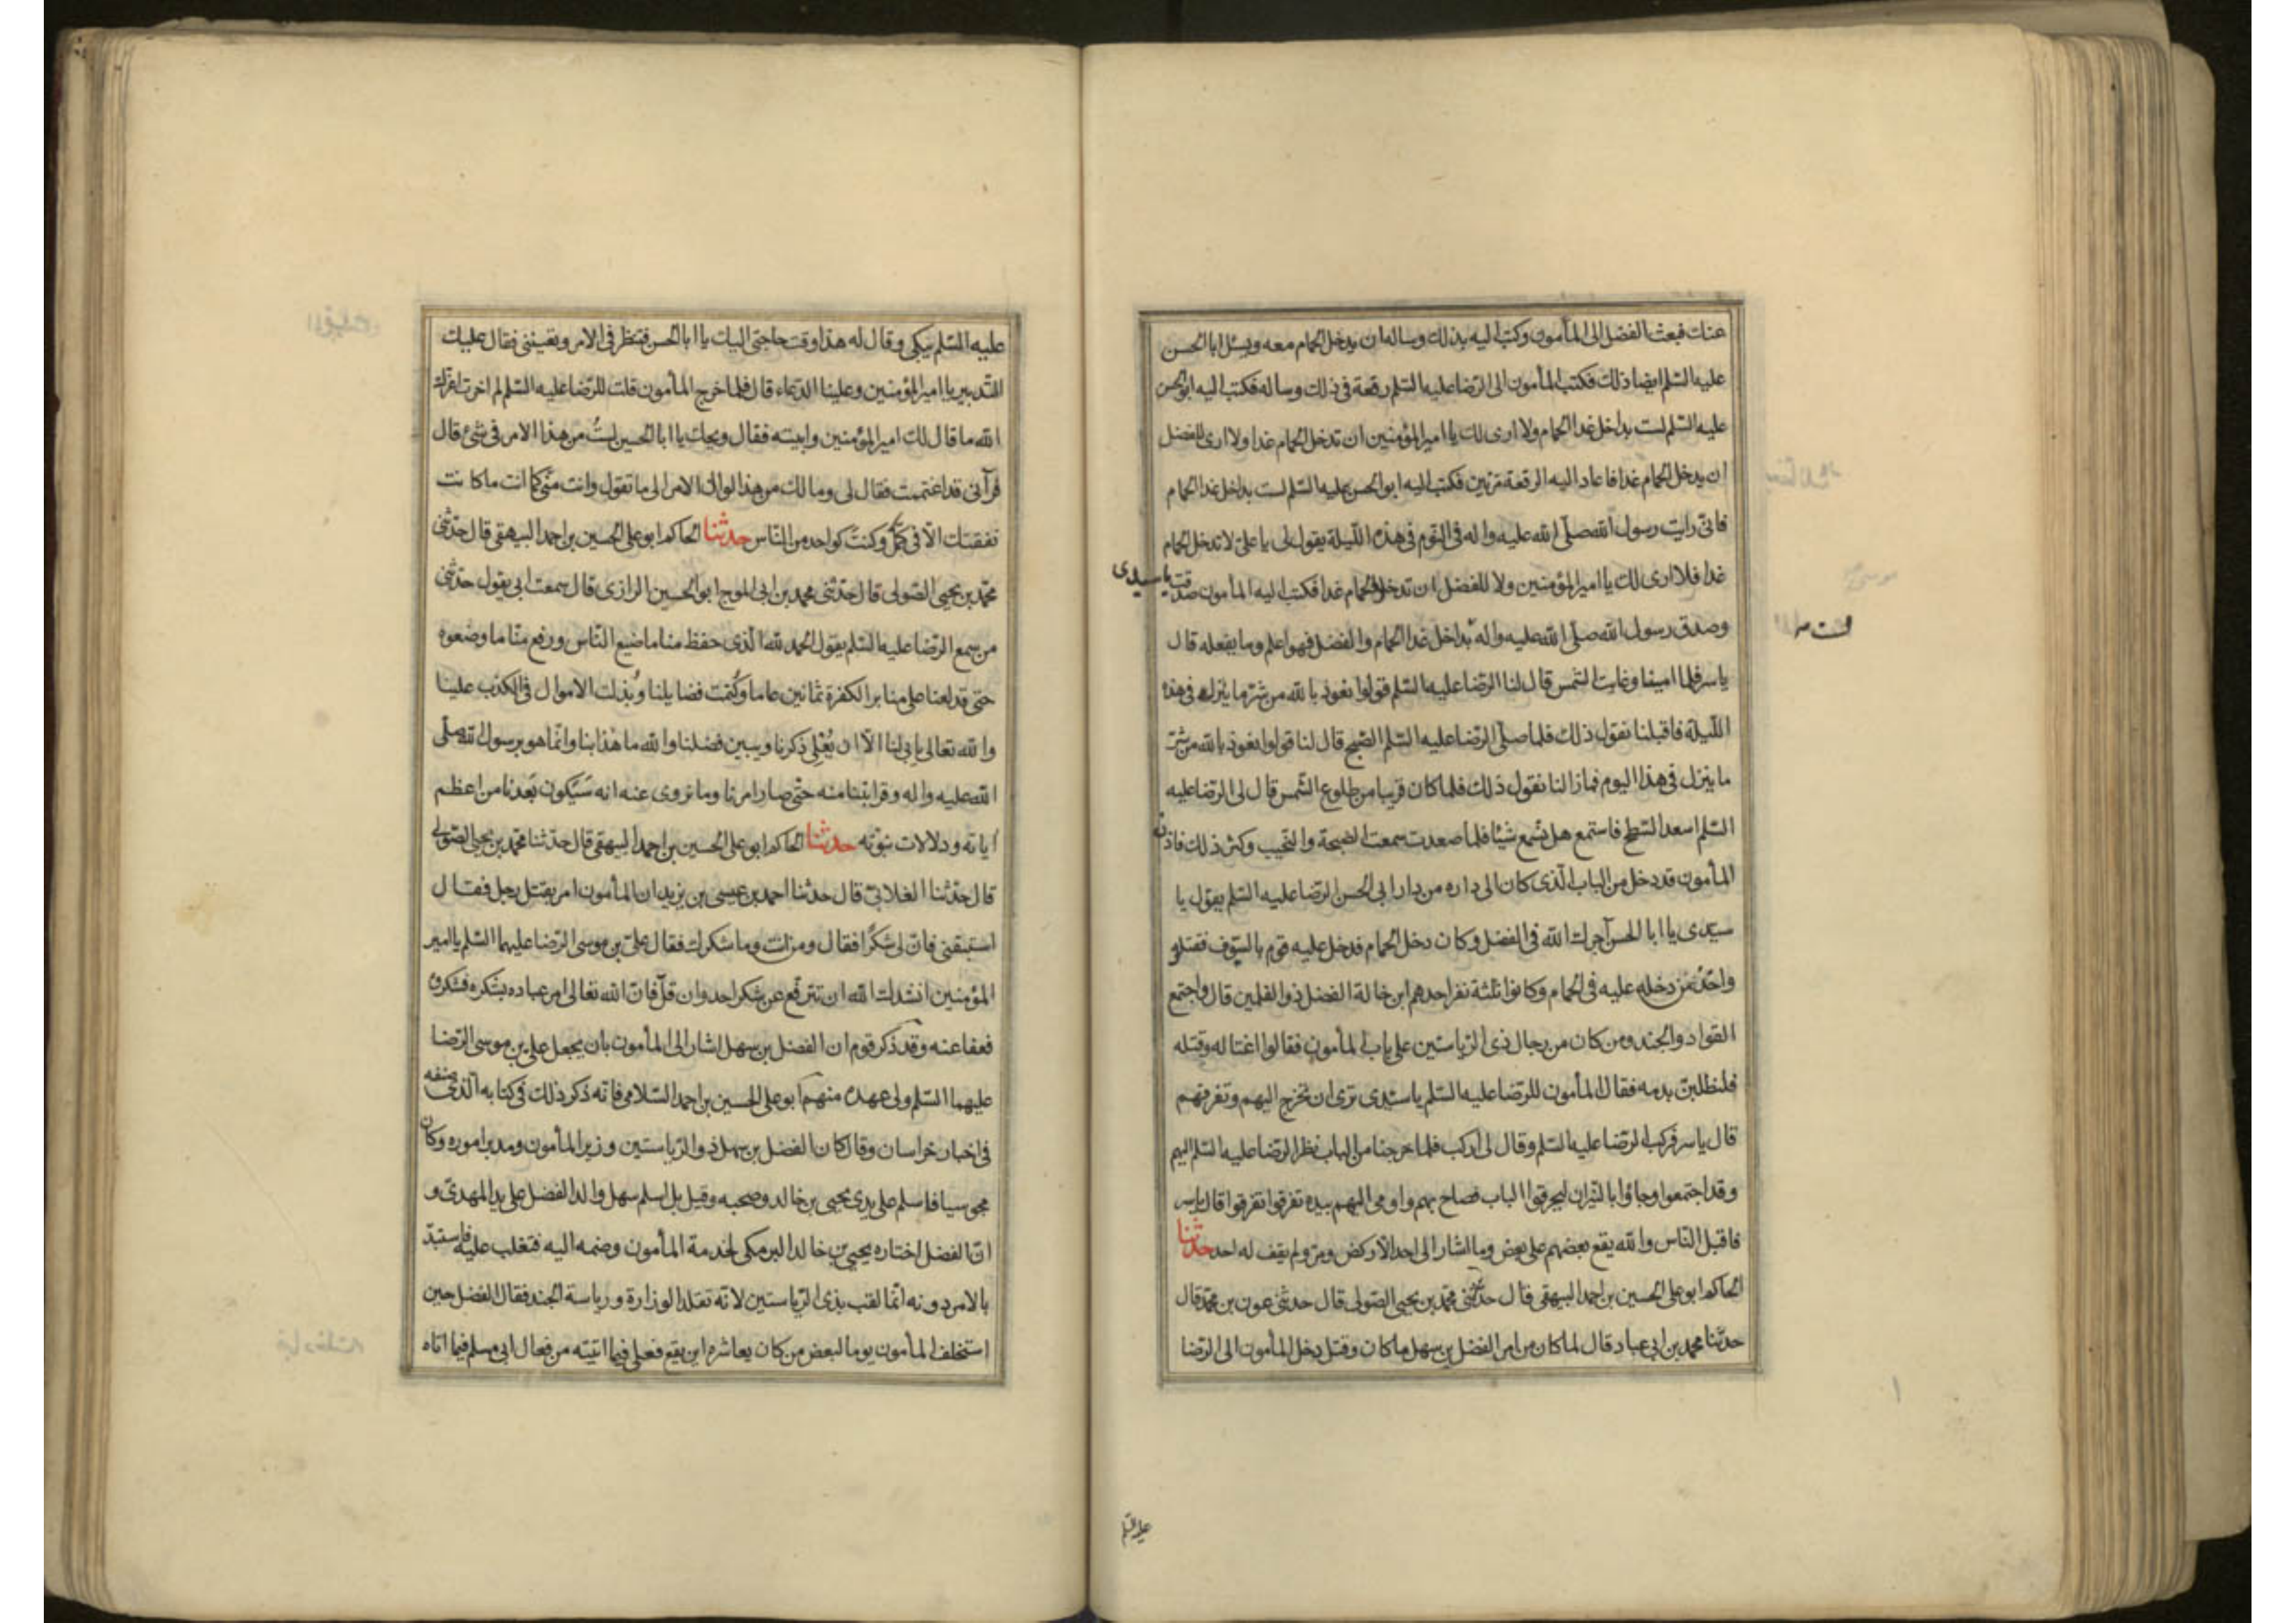 عنك فبعث الفضل الى المأمون وكتب اليه بذلك وساله ان يدخل الحمام معه ويسئل ابا الحسن
عليه السلم ايضا ذلك فكتب المأمون الى الرضا عليه السلم رقعة فى ذلك وساله فكتب اليه ابو الحسن
عليه السلم لست بداخل غدا الحمام ولا ارى لك يا امير المؤمنين ان تدخل الحمام غدا ولا ارى للفضل
ان يدخل الحمام غدا فاعاد اليه الرقعة مرتين فكتب اليه ابو الحسن عليه السلم لست بداخل غدا الحمام
فانى رايت رسول الله صلى الله عليه واله فى النوم فى هذه الليلة يقول لى يا على لا تدخل الحمام
غدا فلا ارى لك يا امير المؤمنين ولا للفضل ان تدخلا الحمام غدا فكتب اليه المأمون صدقت يا سيدى
وصدق رسول الله صلى الله عليه واله بداخل غدا الحمام والفضل فهو اعلم وما يفعله قال
لست صح
ياسر فلما امسينا وغابت الشمس قال لنا الرضا عليه السلم قولوا نعوذ بالله من شر ما ينزل فى هذه
الليلة فاقبلنا نقول ذلك فلما صلى الرضا عليه السلم الصبح قال لنا قولوا نعوذ بالله من شر
ما ينزل فى هذا اليوم فما زالنا نقول ذلك فلما كان قريبا من طلوع الشمس قال لى الرضا عليه
السلم اسعد السطح فاستمع هل تسمع شيئا فلما صعدت سمعت الضجة والنحيب وكثر ذلك فاذن
المأمون قد دخل من الباب الذى كان الى داره من دار ابى الحسن الرضا عليه السلم يقول يا
سيدى يا ابا الحسن آجرك الله فى الفضل وكان دخل الحمام فدخل عليه قوم بالسيوف فقتلوه
واخذ ممن دخله عليه فى الحمام وكانوا ثلثة نفر احدهم ابن خالة الفضل ذو القلمين قال واجتمع
القواد والجند ومن كان من رجال ذى الرياستين على باب المأمون فقالوا اغتاله وقتله
فلنطلبن بدمه فقال المأمون للرضا عليه السلم يا سيدى ترى ان تخرج اليهم وتفرقهم
قال ياسر فركب الرضا عليه السلم وقال لى اركب فلما خرجنا من الباب نظر الرضا عليه السلم اليهم
وقد اجتمعوا وجاؤا بالنيران ليحرقوا الباب فصاح بهم واومى اليهم بيده تفرقوا تفرقوا قال ياسر
فاقبل الناس والله يقع بعضهم على بعض وما اشار الى احد الا ركض ومر ولم يقف له احد حدثنا
الحاكم ابو على الحسين بن احمد البيهقى قال حدثنى محمد بن يحيى الصولى قال حدثنى عون بن محمد قال
حدثنا محمد بن ابى عباد قال لما كان من امر الفضل بن سهل ما كان وقتل دخل المأمون الى الرضا
عليه السلم
عليه السلم يبكى وقال له هذا وقت حاجتى اليك يا ابا الحسن فتنظر فى الامر وتعيننى فقال عليك
التدبير يا امير المؤمنين وعلينا الدعاء قال فلما خرج المأمون قلت للرضا عليه السلم لم اخرت اعزك
الله ما قال لك امير المؤمنين وابيته فقال ويحك يا ابا الحسين لست من هذا الامر فى شئ قال
فرآنى قد اغتممت فقال لى وما لك من هذا لو ال الامر الى ما تقول وانت منى كما انت ما كانت
نفقتك الا فى كمك وكنت كواحد من الناس حدثنا الحاكم ابو على الحسين بن احمد البيهقى قال حدثنى
محمد بن يحيى الصولى قال حدثنى محمد بن ابى الموج ابو الحسين الرازى قال سمعت ابى يقول حدثنى
من سمع الرضا عليه السلم يقول الحمد لله الذى حفظ منا ما ضيع الناس ورفع منا ما وضعوه
حتى قد لعنا على منابر الكفرة ثمانين عاما وكتمت فضايلنا وبذلت الاموال فى الكذب علينا
والله تعالى يابى لنا الا ان يعلى ذكرنا ويبين فضلنا والله ما هذا بنا وانما هو برسول الله صلى
الله عليه واله وقرابتنا منه حتى صار امرنا وما نروى عنه انه سيكون بعدنا من اعظم
اياته ودلالات نبوته حدثنا الحاكم ابو على الحسين بن احمد البيهقى قال حدثنا محمد بن يحيى الصولى
قال حدثنا الغلابى قال حدثنا احمد بن عيسى بن يزيد ان المأمون امر بقتل رجل فقال
استبقنى فان لى شكرا فقال ومن انت وما شكرك فقال على بن موسى الرضا عليهما السلم يا امير
المؤمنين انشدك الله ان تترفع عن شكر احد وان قل فان الله تعالى امر عباده بشكره فشكروه
فعفا عنه وقد ذكر قوم ان الفضل بن سهل اشار الى المأمون بان يجعل على بن موسى الرضا
عليهما السلم ولى عهده منهم ابو على الحسين بن احمد السلامى فانه ذكر ذلك فى كتابه الذى صنفه
فى اخبار خراسان وقال كان الفضل بن سهل ذو الرياستين وزير المأمون ومدبر اموره وكان
مجوسيا فاسلم على يدى يحيى بن خالد وصحبه وقيل بل اسلم سهل والد الفضل على يد المهدى و
ان الفضل اختاره يحيى بن خالد البرمكى لخدمة المأمون وضمه اليه فتغلب عليه فاستبد
بالامر دونه انما لقب بذى الرياستين لانه تقلد الوزارة ورياسة الجند فقال الفضل حين
استخلف المأمون يوما لبعض من كان يعاشره اين يقع فعلى فيما اتيته من فعال ابى مسلم فيما اتاه